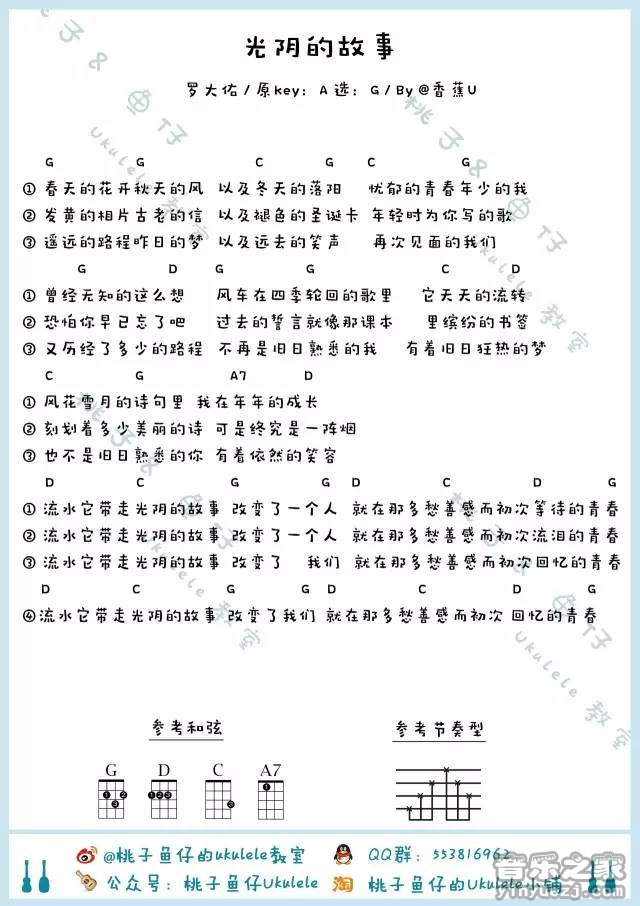 光阴的故事
罗大佑/原key：A 选：G/By @香蕉U
G G C G C G
① 春天的花开秋天的风 以及冬天的落阳 忧郁的青春年少的我
② 发黄的相片古老的信 以及褪色的圣诞卡 年轻时为你写的歌
③ 遥远的路程昨日的梦 以及远去的笑声 再次见面的我们
G D G G C D
① 曾经无知的这么想 风车在四季轮回的歌里 它天天的流转
② 恐怕你早已忘了吧 过去的誓言就像那课本 里缤纷的书签
③ 又历经了多少的路程 不再是旧日熟悉的我 有着旧日狂热的梦
C G A7 D
① 风花雪月的诗句里 我在年年的成长
② 刻划着多少美丽的诗 可是终究是一阵烟
③ 也不是旧日熟悉的你 有着依然的笑容
D C G G D C D G
① 流水它带走光阴的故事 改变了一个人 就在那多愁善感而初次等待的青春
② 流水它带走光阴的故事 改变了一个人 就在那多愁善感而初次流泪的青春
③ 流水它带走光阴的故事 改变了 我们 就在那多愁善感而初次回忆的青春
D C G G D C D G
④流水它带走光阴的故事 改变了我们 就在那多愁善感而初次 回忆的青春
参考和弦 参考节奏型
G D C A7
@桃子鱼仔的ukulele教室 QQ群：553816962
公众号：桃子鱼仔Ukulele 淘 桃子鱼仔的Ukulele小铺
桃子&鱼仔
Ukulele 教室
音乐之家
yinyuezj.com